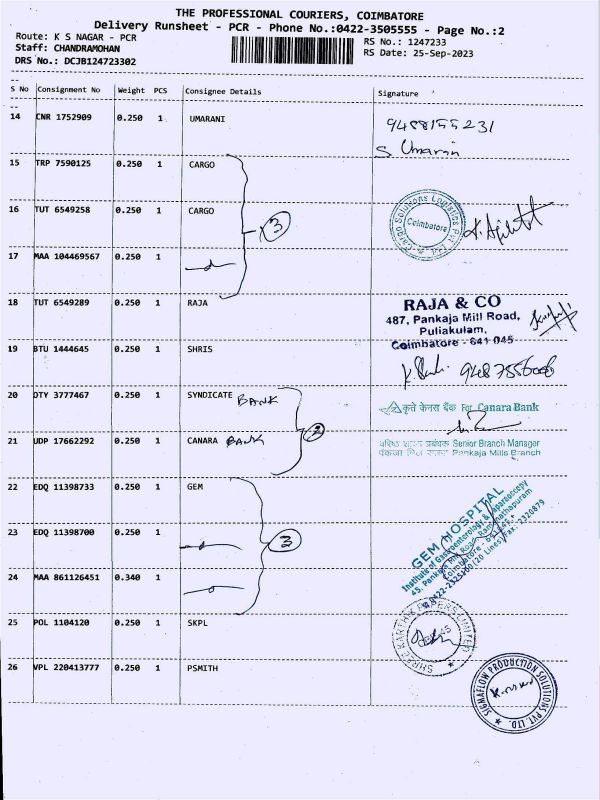 THE PROFESSIONAL COURIERS, COIMBATORE
Delivery Runsheet - PCR - Phone No.:0422-3505555 - Page No.:2
Route: K S NAGAR - PCR
RS No.: 1247233
Staff: CHANDRAMOHAN
RS Date: 25-Sep-2023
DRS No.: DCJB124723302
S No Consignment No Weight PCS Consignee Details Signature
14 CNR 1752909 0.250 1 UMARANI
9488155231
S Umarani
15 TRP 7590125 0.250 1 CARGO
16 TUT 6549258 0.250 1 CARGO
3
Cargo Solutions Logistics Pvt. Ltd.
Coimbatore
17 MAA 104469567 0.250 1
18 TUT 6549289 0.250 1 RAJA
RAJA & CO
487, Pankaja Mill Road,
Puliakulam,
Coimbatore - 641 045
19 BTU 1444645 0.250 1 SHRIS
20 DTY 3777467 0.250 1 SYNDICATE BANK
कृते केनरा बैंक For Canara Bank
21 UDP 17662292 0.250 1 CANARA BANK
2
Senior Branch Manager
Pankaja Mills Branch
22 EDQ 11398733 0.250 1 GEM
GEM HOSPITAL
Institute of Gastroenterology & Laparoscopy
45, Pankaja Mill Road, Ramanathapuram
Coimbatore
23 EDQ 11398700 0.250 1
3
24 MAA 861126451 0.340 1
25 POL 1104120 0.250 1 SKPL
SHREE KARTHIK PAPERS LIMITED
26 VPL 220413777 0.250 1 PSMITH
SIGMAFLOW PRODUCTION SOLUTIONS PVT. LTD.